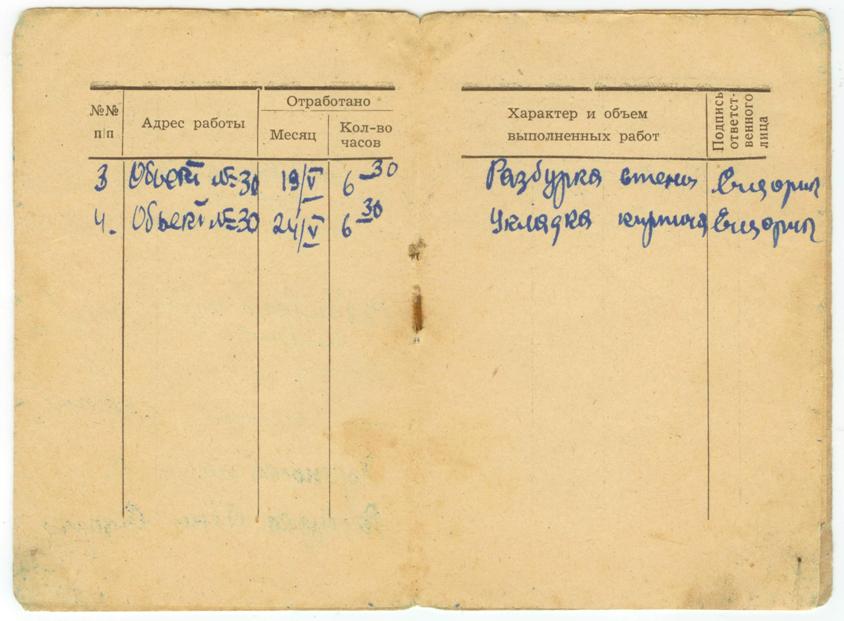 №№ п/п
Адрес работы
Отработано
Месяц
Кол-во часов
Характер и объем
выполненных работ
Подпись ответст-
венного
лица
3 Объект №30 19/V 6-30 Разбурка стены
4. Объект №30 24/V 6-30 Укладка кирпича